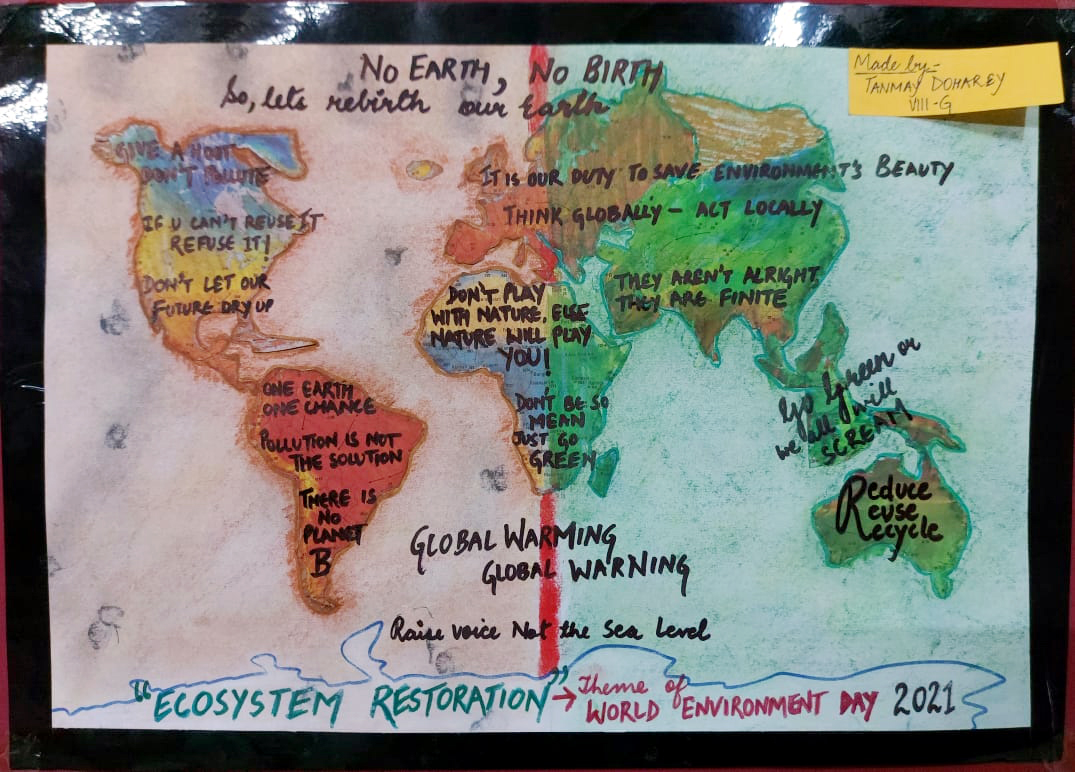 No EARTH, No BIRTH
So, lets rebirth our Earth
Made by-
TANMAY DOHAREY
VIII-G
GIVE A HOOT
DON'T POLLUTE
IF U CAN'T REUSE IT
REFUSE IT!
DON'T LET OUR
FUTURE DRY UP
IT IS OUR DUTY TO SAVE ENVIRONMENT'S BEAUTY
THINK GLOBALLY - ACT LOCALLY
THEY AREN'T ALRIGHT,
THEY ARE FINITE
DON'T PLAY
WITH NATURE, ELSE
NATURE WILL PLAY
YOU!
DON'T BE SO
MEAN
JUST GO
GREEN
ONE EARTH
ONE CHANCE
POLLUTION IS NOT
THE SOLUTION
THERE IS
NO
PLANET
B
Go Green or
we all will
SCREAM
Reduce
Reuse
Recycle
GLOBAL WARMING
GLOBAL WARNING
Raise voice Not the Sea Level
"ECOSYSTEM RESTORATION" → Theme of
WORLD ENVIRONMENT DAY 2021